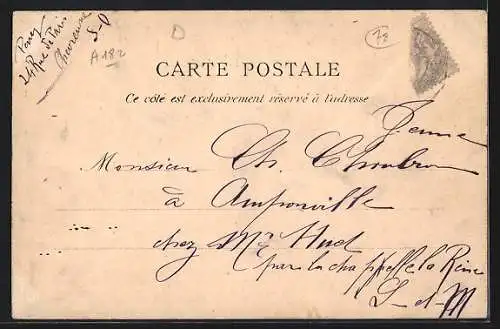 24 Rue de Paris
Chevreuse
S-O
A182
D
78
CARTE POSTALE
Ce côté est exclusivement réservé à l'adresse
Jeune
Monsieur Ch.
à Amponville
chez Mr Huet
par la chappelle la Reine
S-et-M